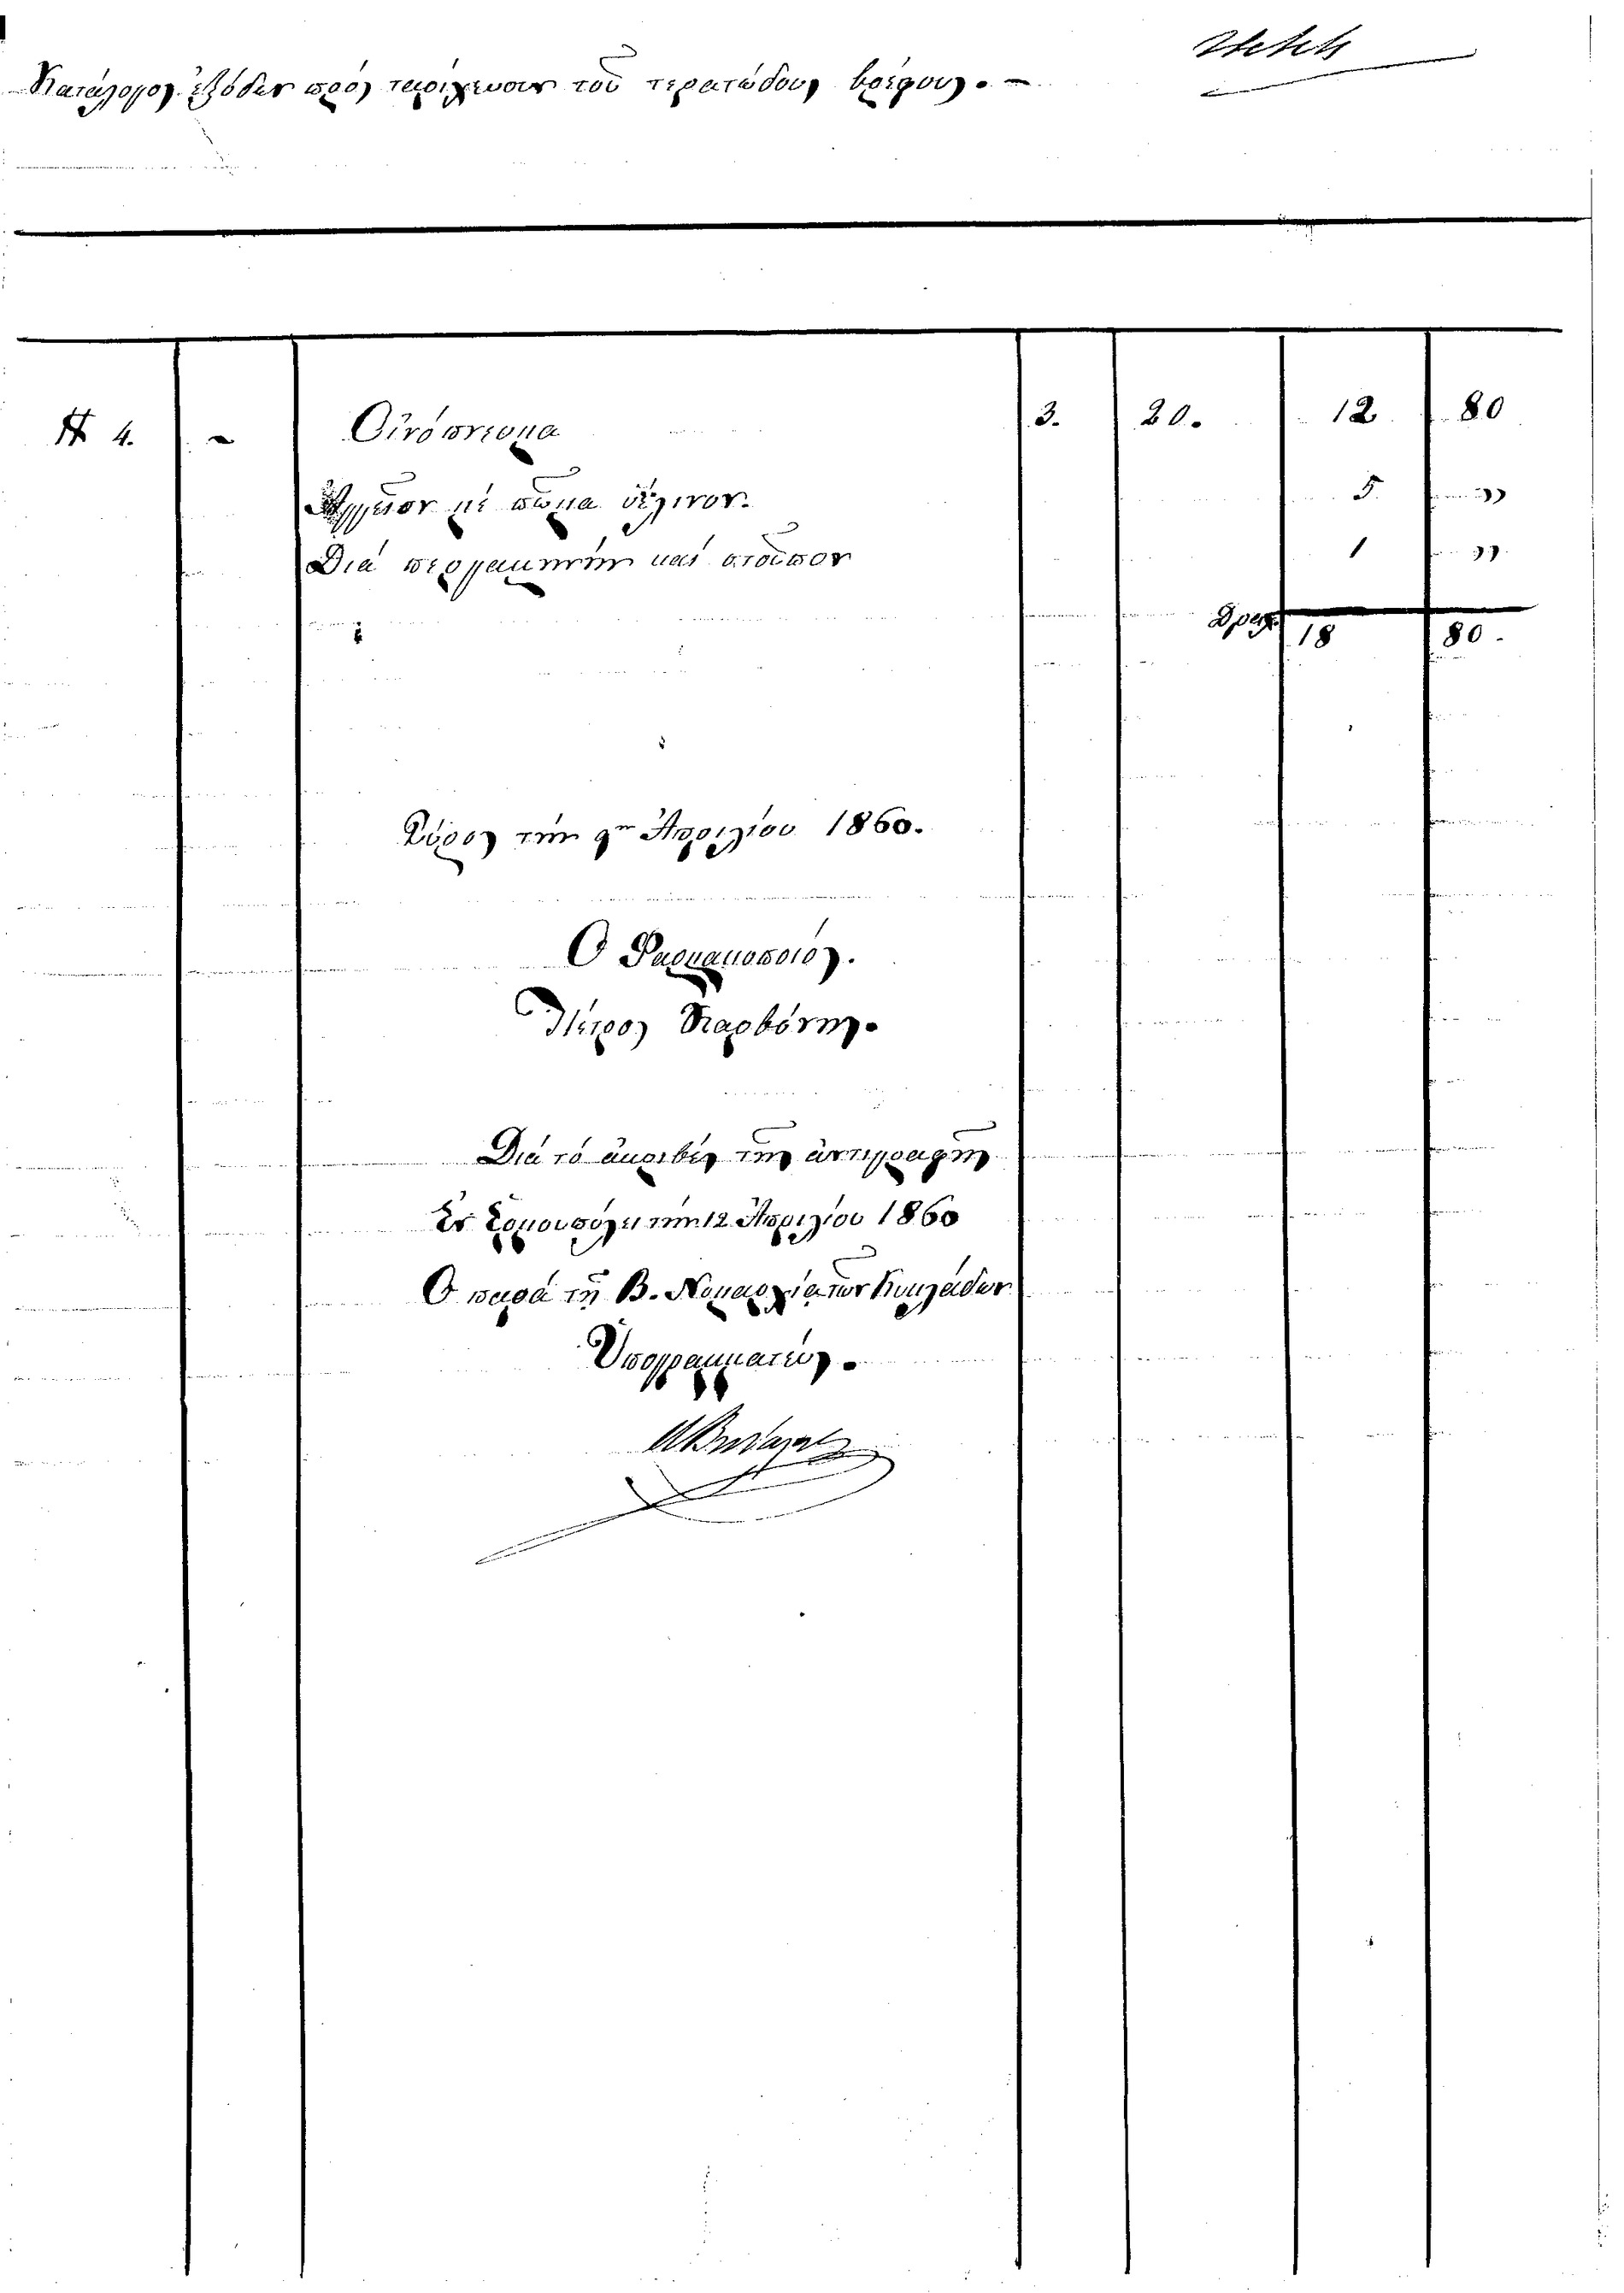 Κατάλογος ἐξόδων πρὸς ταρίχευσιν τοῦ τερατώδους βρέφους. —
№ 4. — Οἰνόπνευμα 3. 20. 12 80
Ἀγγεῖον μὲ πῶμα ὑέλινον. 5. "
Διὰ μεταφορὰν καὶ 1 "
Δραχ. 18 80
Σύρος τὴν 9ην Ἀπριλίου 1860.
Ὁ Φαρμακοποιός.
Πέτρος
Διὰ τὸ ἀκριβὲς τῆς ἀντιγραφῆς
Ἐν Ἑρμουπόλει τὴν 12 Ἀπριλίου 1860
Ὁ παρὰ τῇ Β. Νομαρχίᾳ τῶν Κυκλάδων
Ὑπογραμματεύς.